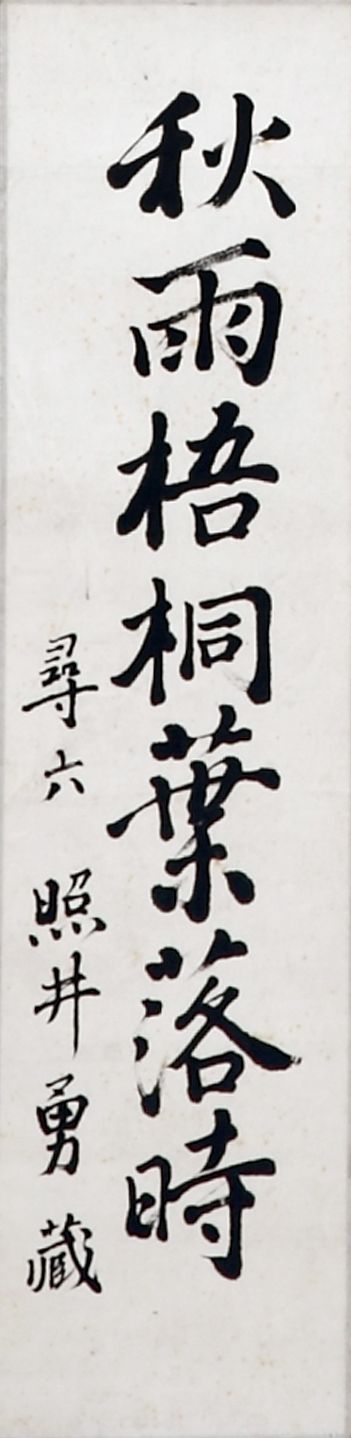 秋雨梧桐葉落時
尋六 照井勇蔵